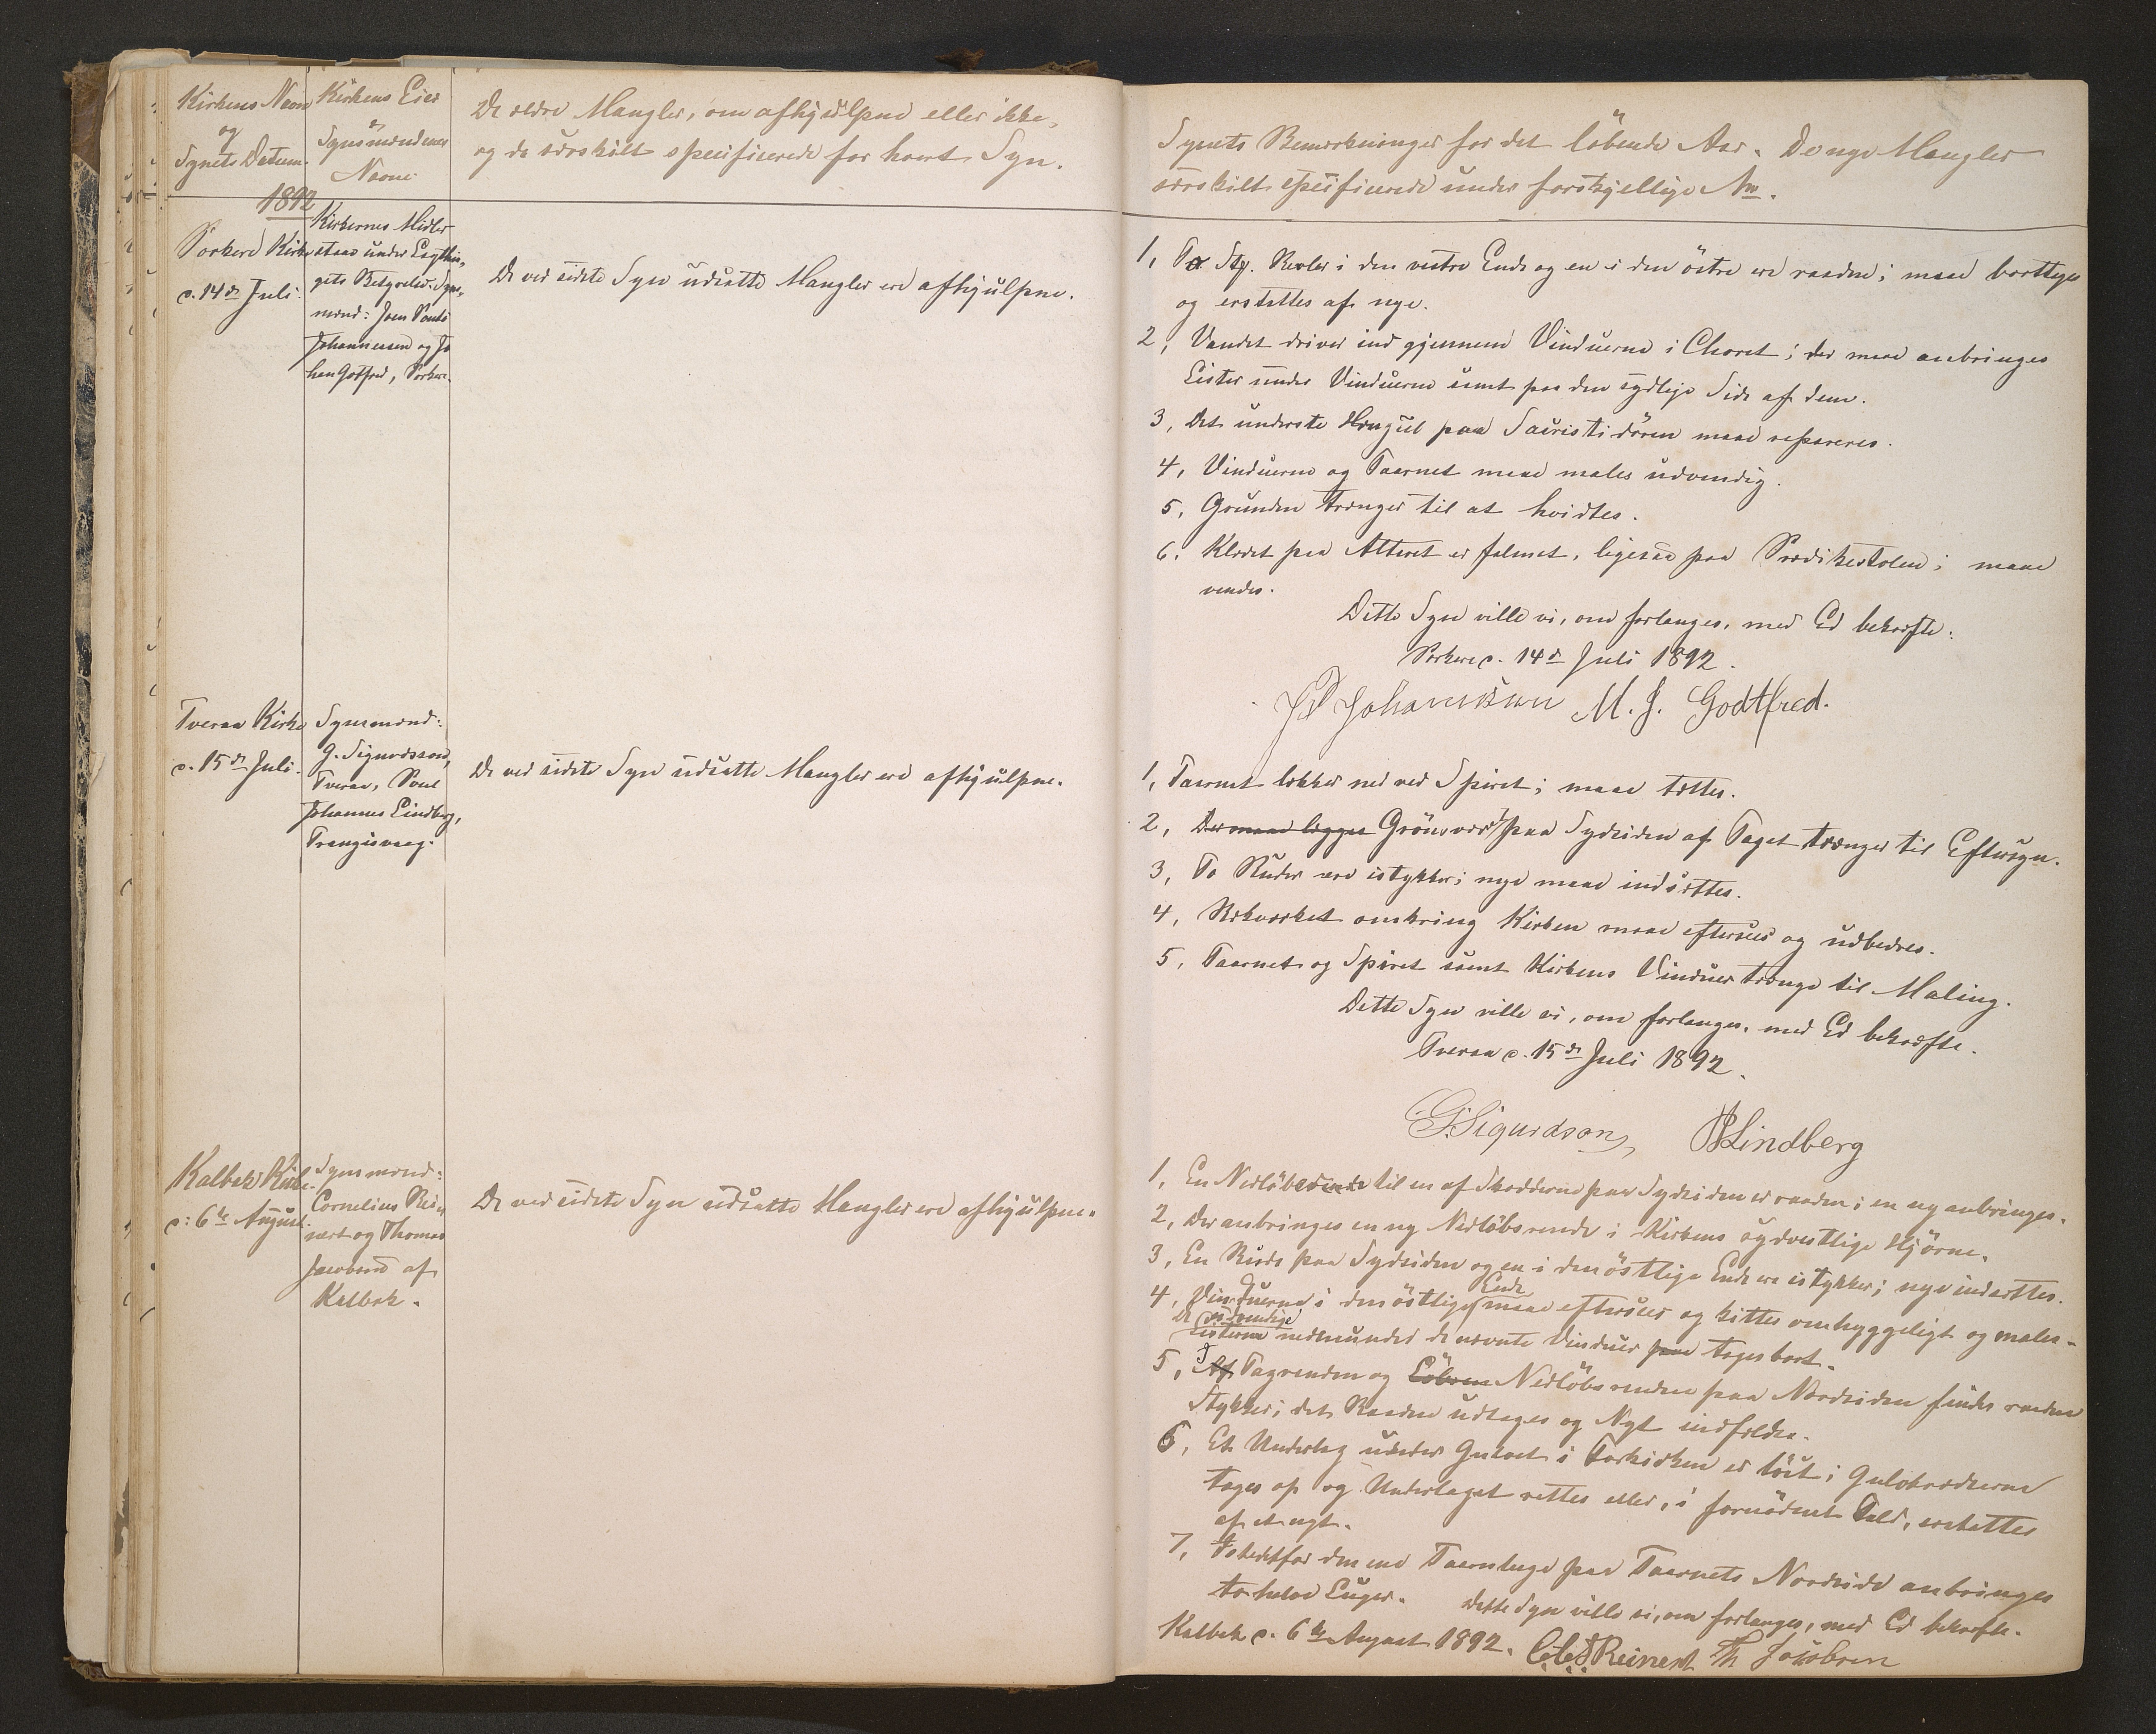 Kirkens Navn
og
Synets Datum.
Kirkens Eier
&
Synsmændenes
Navne.
De ældre Mangler, om afhjulpne eller ikke,
og da særskilt specificerede for hvert Syn.
1892
Porkere Kirke
d. 14de Juli.
Kirkernes Midler
staae under Lagthin-
gets Bestyrelse. Syns-
mænd: Joen Pouli
Johannessen og Jo
han Gotfred, Porkere.
De ved sidste Syn udsatte Mangler ere afhjulpne.
Tveraa Kirke
d. 15de Juli.
Synsmænd:
G. Sigurdsson,
Tveraa, Poul
Johannes Lindberg,
Trangisvaag.
De ved sidste Syn udsatte Mangler ere afhjulpne.
Kalbak Kirke.
d: 6te August.
Synsmænd:
Cornelius Rei-
nert og Thomas
Jacobsen af
Kalbak.
De ved sidste Syn udsatte Mangler ere afhjulpne.
Synets Bemærkninger for det löbende Aar. De nye Mangler
særskilt specificerede under forskjellige No.
1, To Revler i den vestre Ende og en i den östre ere raadne; maae borttages
og erstattes af nye.
2, Vandet driver ind gjennem Vinduerne i Choret; der maae anbringes
Lister under Vinduerne samt paa den sydlige Side af dem.
3, Det underste Hængsel paa Sacristidören maae repareres.
4, Vinduerne og Taarnet maae males udvendig.
5, Grunden trænger til at hvidtes.
6. Klædet paa Alteret er falmet, ligesaa paa Prædikestolen; maae
vendes.
Dette Syn ville vi, om forlanges, med Ed bekræfte.
Porkere d. 14de Juli 1892.
JP Johannessen M. J. Godtfred.
1, Taarnet lækker ned ved Spiret; maae tættes.
2, Der maae lægges Grönsvær paa Sydsiden af Taget trænger til Eftersyn.
3, To Ruder ere istykker; nye maae indsættes.
4, Rækværket omkring Kirken maae eftersees og udbedres.
5, Taarnet og Spiret samt Kirkens Vinduer trænge til Maling.
Dette Syn ville vi, om forlanges, med Ed bekræfte.
Tveraa d. 15de Juli 1892.
G. Sigurdson, PJLindberg
1, En Nedlöbsrende til en af Skodderne paa Sydsiden er raaden; en ny anbringes.
2, Der anbringes en ny Nedlöbsrende i Kirkens sydvestlige Hjörne.
3, En Rude paa Sydsiden og en i den östlige Ende ere istykker; nye indsættes.
4, Vinduerne i den östlige Ende maae eftersees og kittes omhyggeligt og males.
De udvendige Listerne nedenunder de nævnte Vinduer paa tages bort.
5, Af I Tagrenden og Nedlöbsrenden paa Nordsiden findes raadne
Stykker; det Raadne udtages og Nyt indfældes.
6, Et Underlag under Gulvet i Forkirken er löst; Gulvbrædderne
tages op og Underlaget rettes eller, i fornödent Fald, erstattes
af et nyt.
7, Istedetfor den ene Taarnluge paa Taarnets Nordside anbringes
to halve Luger. Dette Syn ville vi, om forlanges, med Ed bekræfte.
Kalbak d. 6te August 1892. Reinert Th Jacobsen